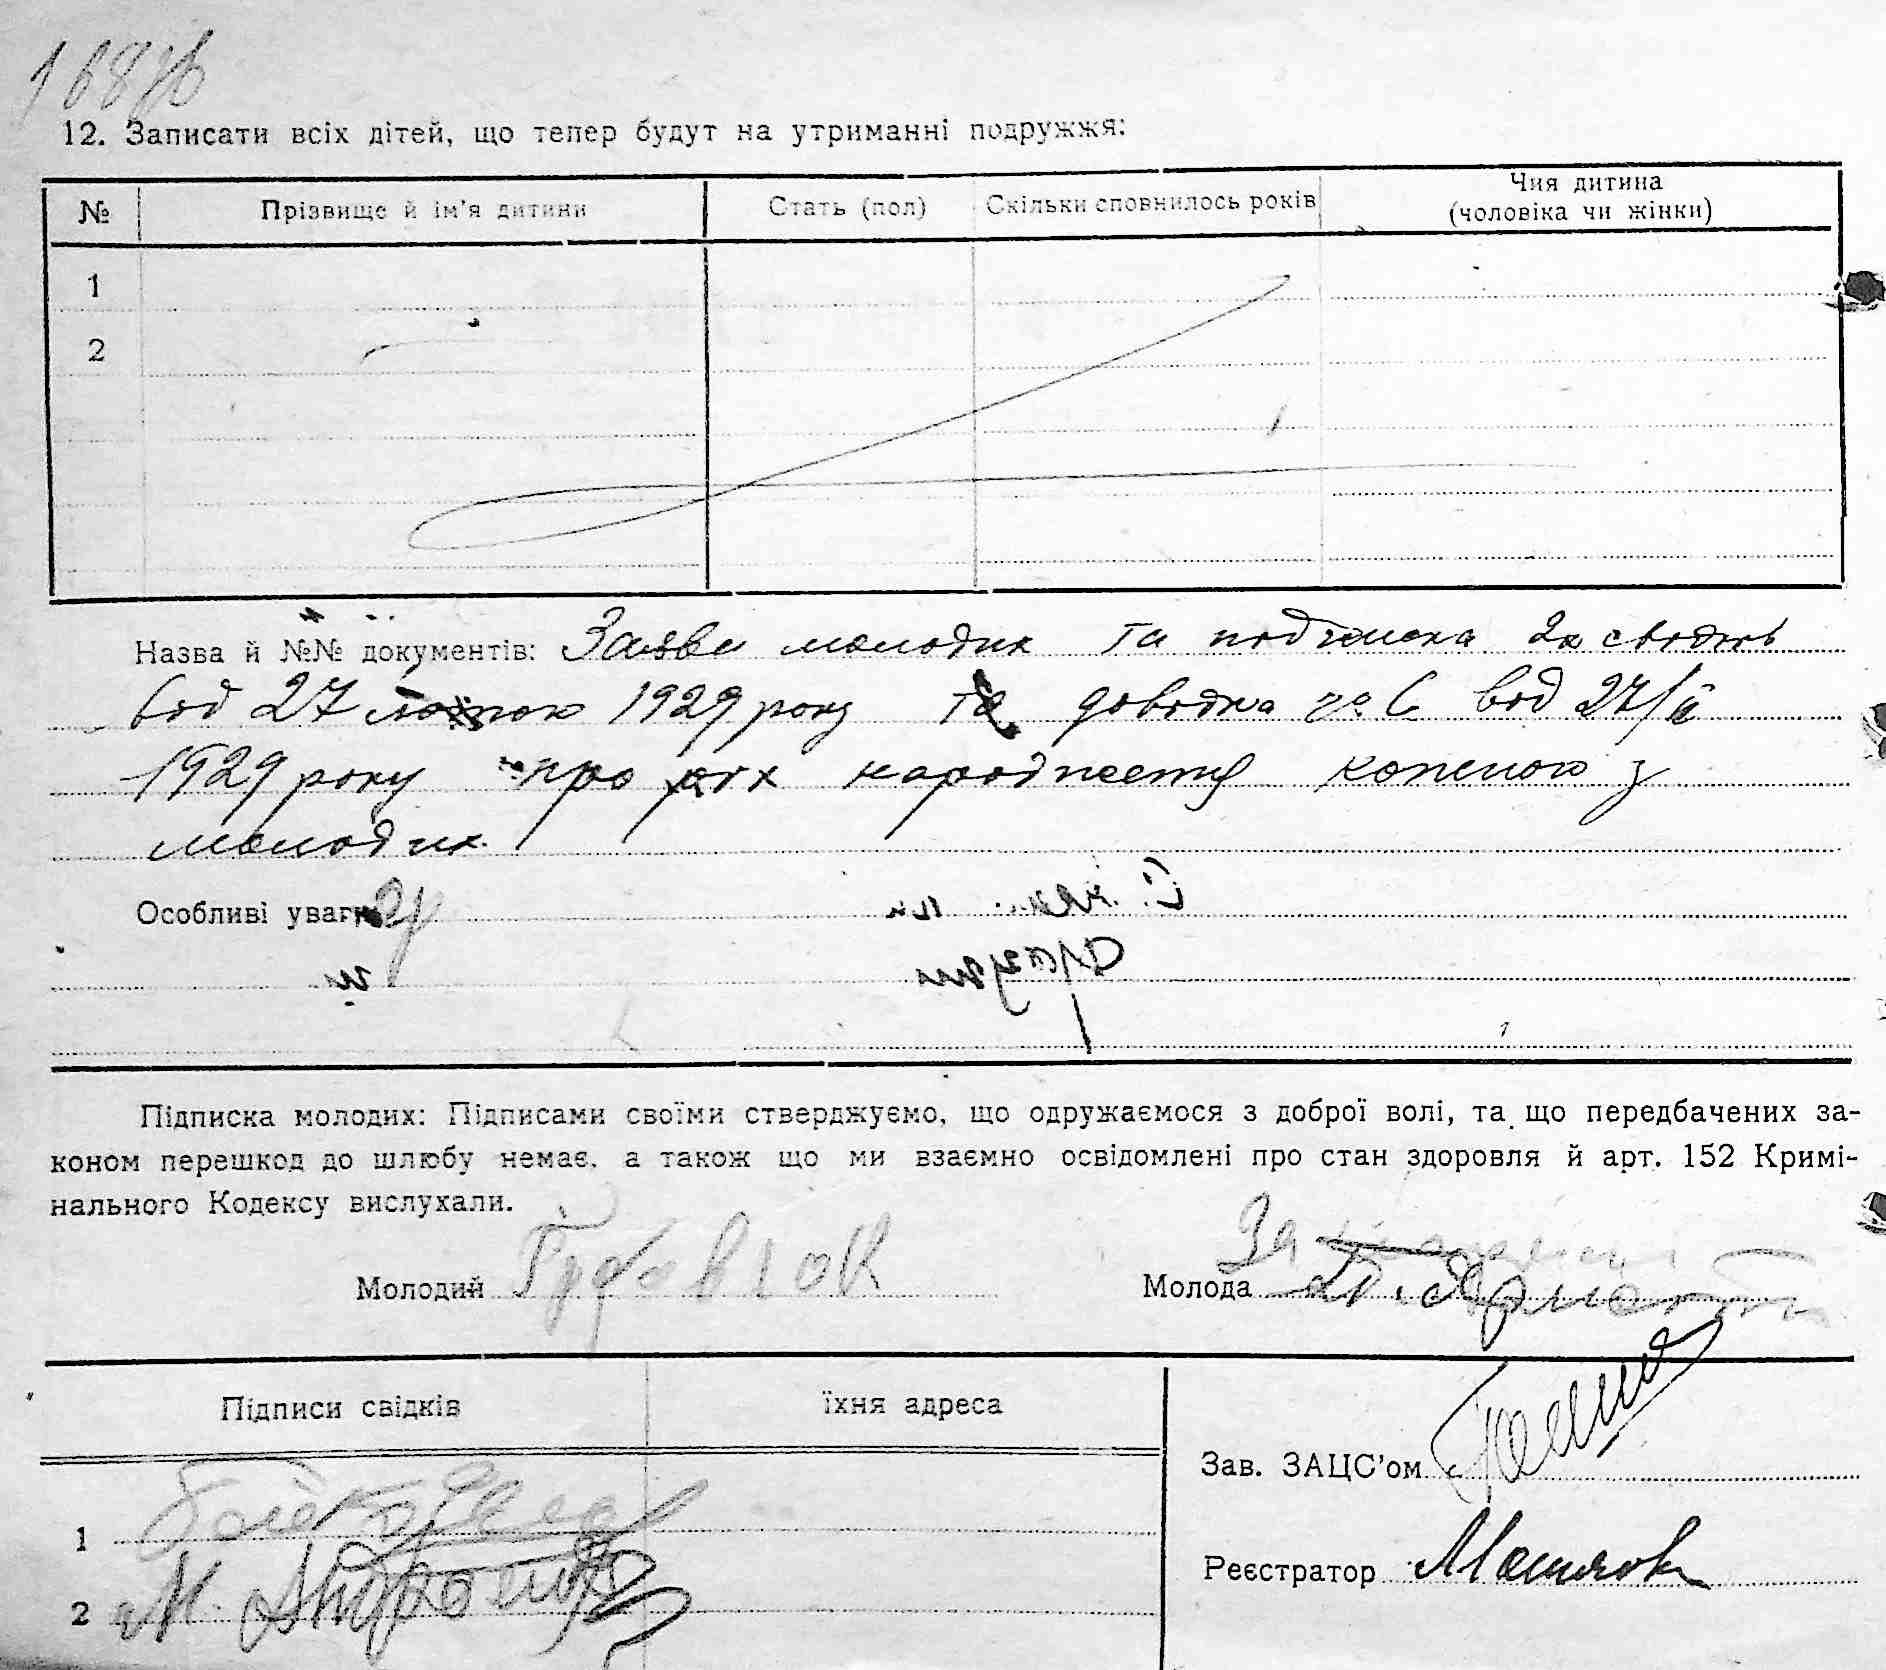 12. Записати всіх дітей, що тепер будут на утриманні подружжя:
№ Прізвище й ім'я дитини Стать (пол) Скільки сповнилось років Чия дитина (чоловіка чи жінки)
1
2
Назва й №№ документів: Заяви молодих та подписка 2х свідків
від 27 лютого 1929 року та довідка за 6 від 27/ІІ
1929 року про рік народження кожного з
молодих
Особливі уваги
Підписка молодих: Підписами своїми стверджуємо, що одружаємося з доброї волі, та що передбачених за-
коном перешкод до шлюбу немає, а також що ми взаємно освідомлені про стан здоровля й арт. 152 Кримі-
нального Кодексу вислухали.
Молодий Молода
Підписи свідків їхня адреса
Зав. ЗАЦС'ом
1
Реєстратор
2 М.